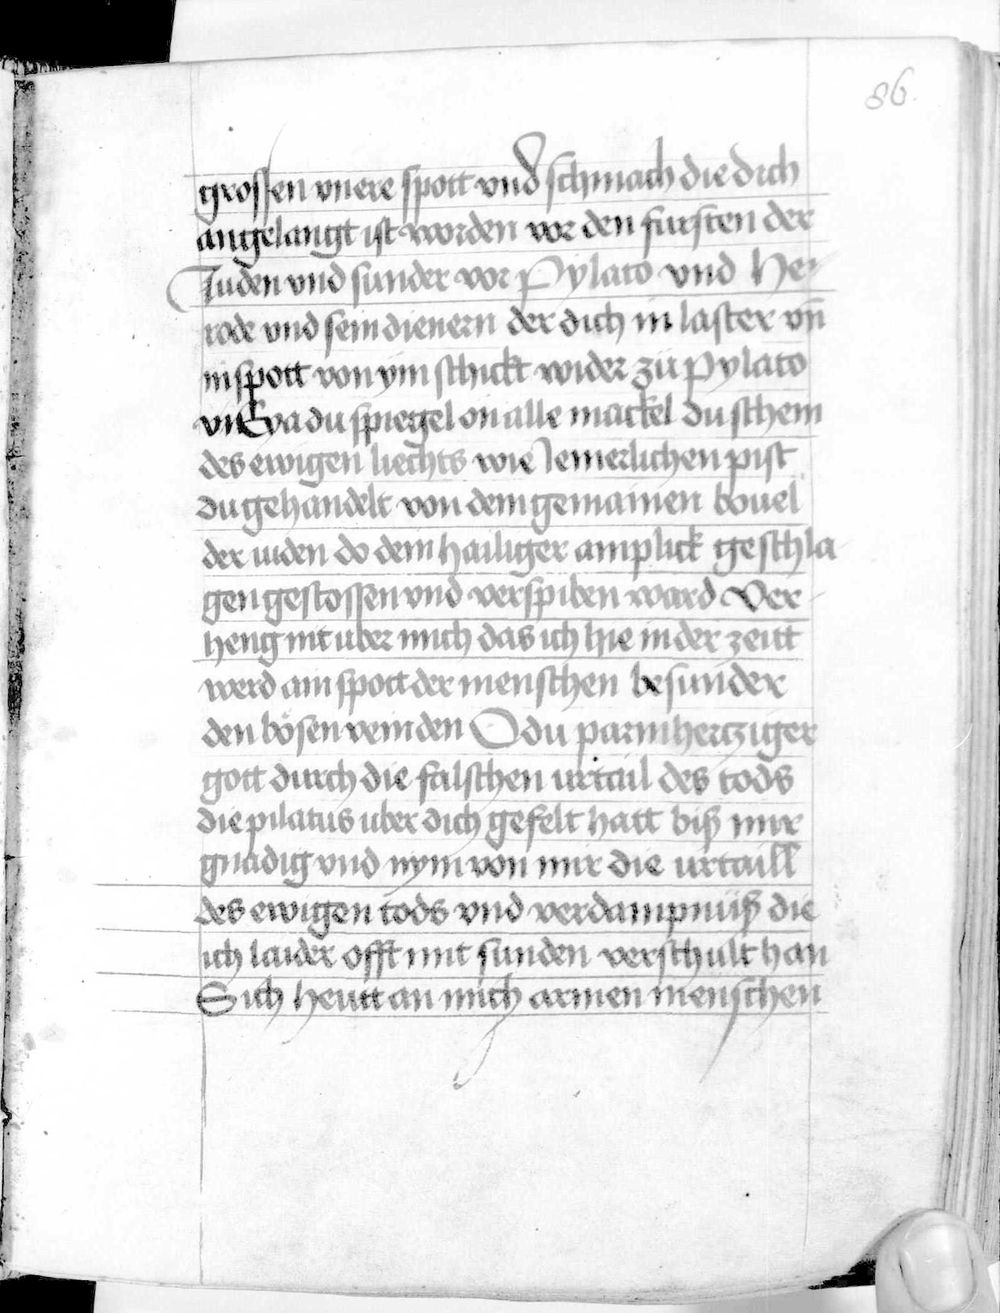 86.
grossen vnere spott vnd schmach die dich
angelangt ist worden vor den fursten der
Juden vnd sunder vor Pylato vnd He-
rode vnd sein dienern der dich in laster vn̄
in spott von ym schickt wider zu Pylato
vn̄ Eya du spiegel on alle mackel du schein
des ewigen liechts wie Jemerlichen pist
du gehandelt von dem gemainen bouel
der iuden do dem hailiger amplick geschla
gen gestossen vnd verspiben ward Ver-
heng nit uber mich das ich hie in der zeitt
werd ain spott der menschen besunder
den bösen veinden O du parmhertziger
gott durch die falschen urtail des tods
die pilatus uber dich gefelt hatt biß mir
gnadig vnd nym von mir die urtaill
des ewigen tods vnd verdampnuß die
ich laider offt mit sunden verschult han
Sich heutt an mich armen menschen